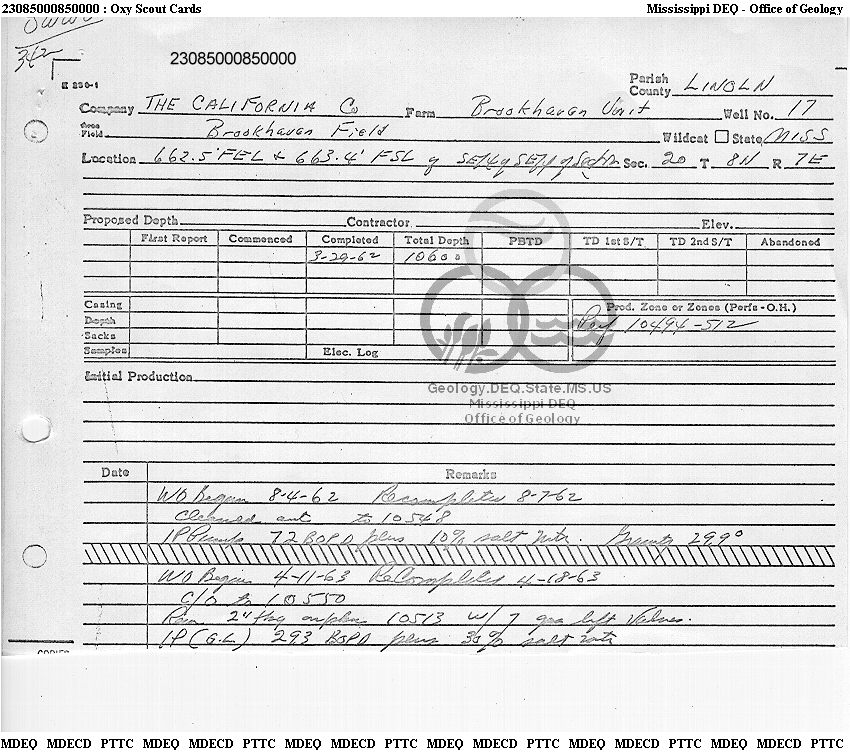 23085000850000 : Oxy Scout Cards Mississippi DEQ - Office of Geology
342
23085000850000
E 230-1
Parish
County LINCOLN
Company THE CALIFORNIA Co Farm Brookhaven Unit Well No. 17
Field Brookhaven Field Wildcat State MISS
Location 662.5' FEL & 663.4' FSL of SE/4 of SE/4 of Section Sec. 20 T. 8N R 7E
Proposed Depth Contractor Elev.
First Report Commenced Completed Total Depth PBTD TD 1st S/T TD 2nd S/T Abandoned
3-29-62 10600
Casing Prod. Zone or Zones (Perfs - O.H.)
Depth Perf 10494-512
Sacks
Samples Elec. Log
Initial Production
Geology.DEQ.State.MS.US
Mississippi DEQ
Office of Geology
Date Remarks
WO Began 8-4-62 Recompleted 8-7-62
Cleaned out to 10548
IP Pump 72 BOPD plus 10% salt wtr. Gravity 29.9°
WO Began 4-11-63 ReCompleted 4-18-63
C/O to 10550
Ran 2" tbg 10513 w/ 7 gas lift Valves.
IP (G.L.) 293 BOPD plus 30% salt wtr
MDEQ MDECD PTTC MDEQ MDECD PTTC MDEQ MDECD PTTC MDEQ MDECD PTTC MDEQ MDECD PTTC MDEQ MDECD PTTC